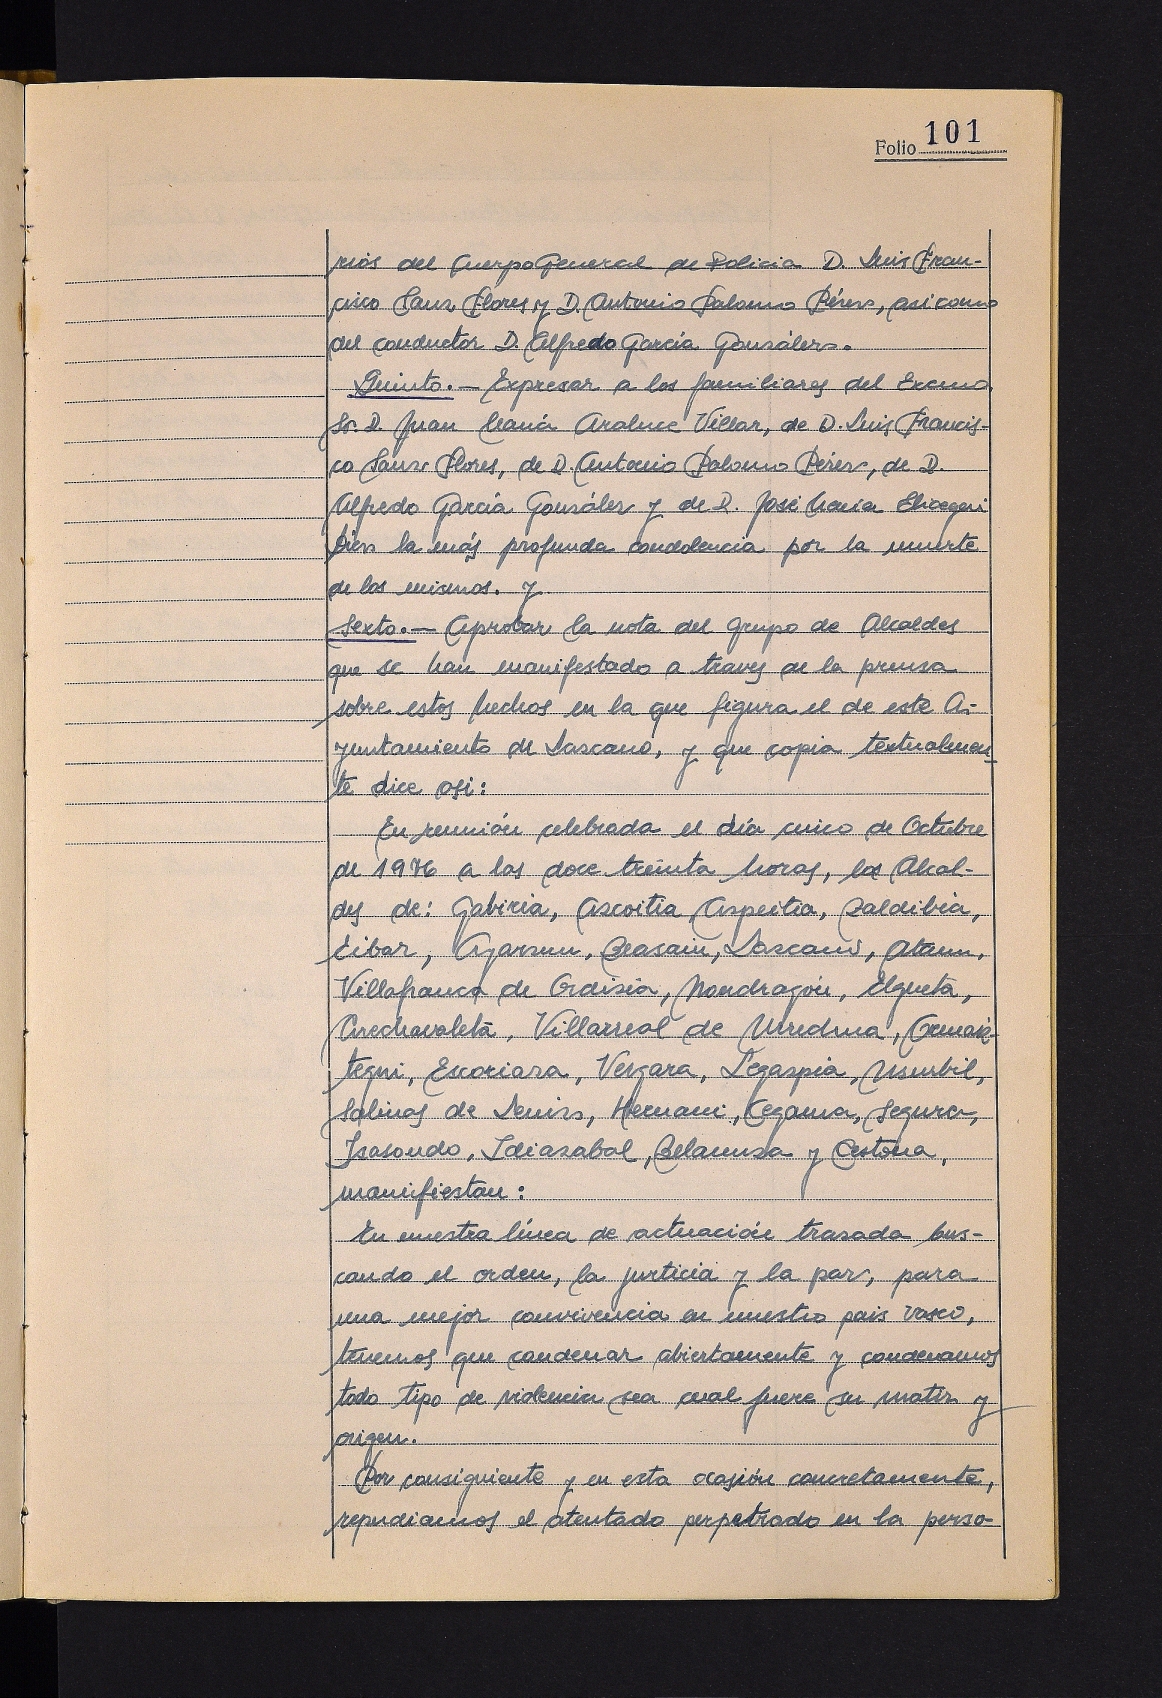 Folio 101
rios del Cuerpo General de Policia D. Luis Fran-
cisco Sanz Flores y D. Antonio Palomo Pérez, asi como
del conductor D. Alfredo García González.
Quinto.- Expresar a los familiares del Excmo.
Sr. D. Juan María Araluce Villar, de D. Luis Francis-
co Sanz Flores, de D. Antonio Palomo Pérez, de D.
Alfredo García González y de D. José María Elicegui
Diez la más profunda condolencia por la muerte
de los mismos. y
Sexto.- Aprobar la nota del grupo de Alcaldes
que se han manifestado a traves de la prensa
sobre estos hechos en la que figura el de este A-
yuntamiento de Lazcano, y que copia textualmen-
te dice asi:
En reunión celebrada el día cinco de Octubre
de 1976 a las doce treinta horas, los Alcal-
des de: Gabiria, Azcoitia, Azpeitia, Zaldibia,
Eibar, Oyarzun, Beasain, Lazcano, Ataun,
Villafranca de Ordizia, Mondragón, Elgueta,
Arechavaleta, Villarreal de Urrechua, Ormaiz-
tegui, Escoriaza, Vergara, Legazpia, Usurbil,
Salinas de Leniz, Hernani, Cegama, Segura,
Isasondo, Idiazabal, Belaunza y Cestona,
manifiestan:
En nuestra línea de actuación trazada bus-
cando el orden, la justicia y la paz, para
una mejor convivencia en nuestro pais vasco,
tenemos que condenar abiertamente y condenamos
todo tipo de violencia sea cual fuere su matiz y
origen.
Por consiguiente y en esta ocasión concretamente,
repudiamos el atentado perpetrado en la perso-